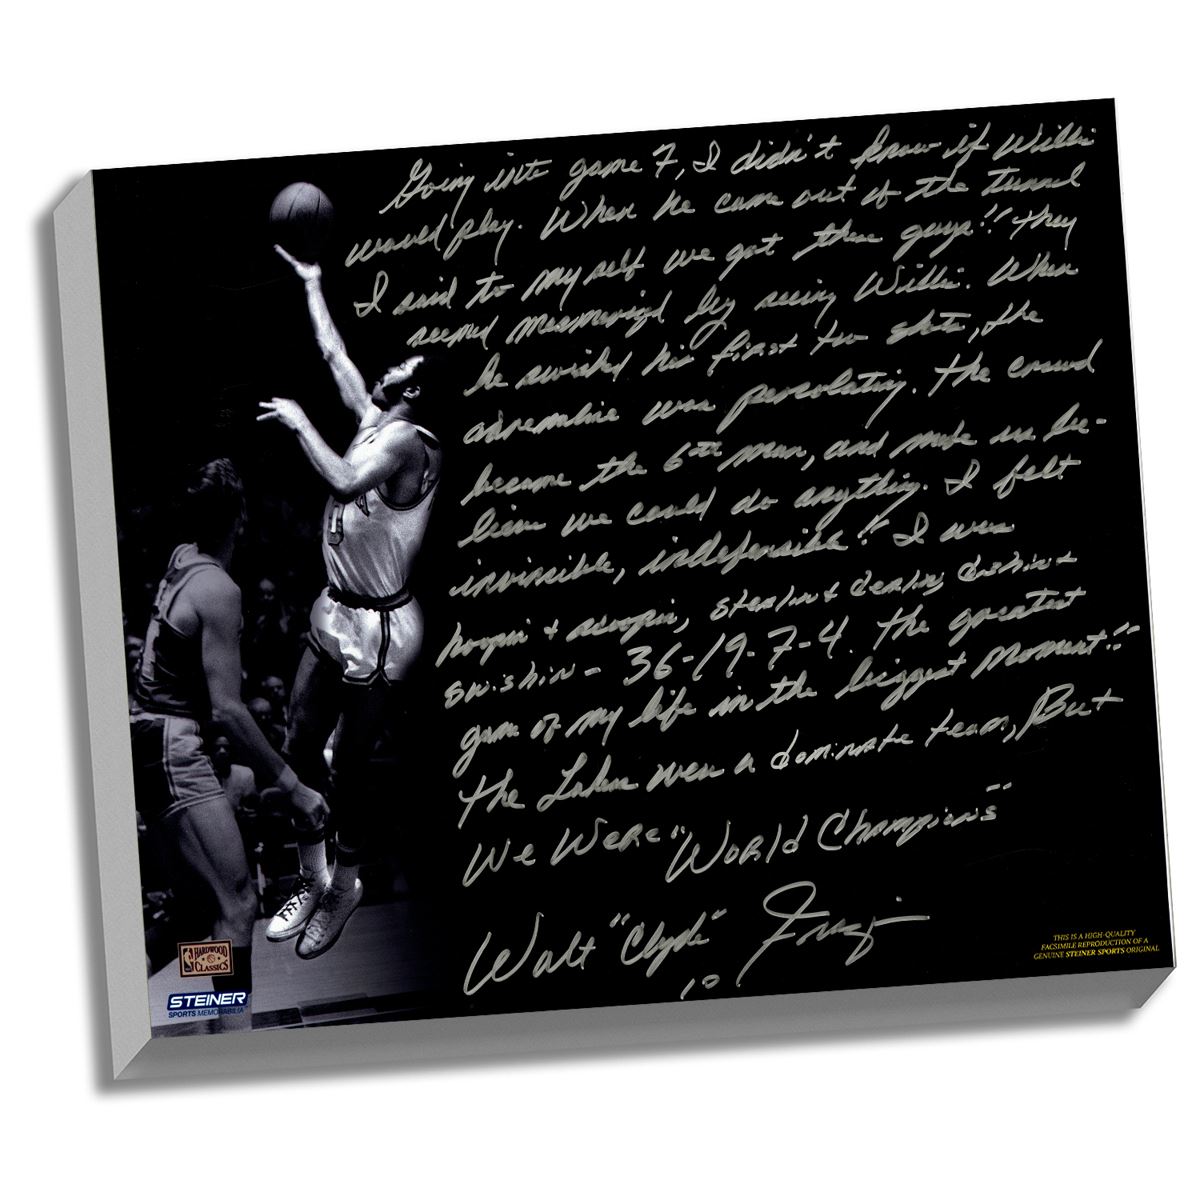 Going into game 7, I didn't know if Willis
would play. When he came out of the tunnel
I said to my self we got these guys!! They
seemed mesmerized by seeing Willis. When
he swished his first two shots, the
adrenaline was percolating. The crowd
became the 6th man, and made us be-
lieve we could do anything. I felt
invincible, indefensible!! I was
hoopin' + scoopin, stealin + dealing dishin +
swishin - 36-19-7-4. The greatest
game of my life in the biggest moment!!
The Lakers were a dominate team, But
We Were "World Champions"
Walt "Clyde" Frazier
10
NBA HARDWOOD CLASSICS
STEINER
SPORTS MEMORABILIA
THIS IS A HIGH-QUALITY
FACSIMILE REPRODUCTION OF A
GENUINE STEINER SPORTS ORIGINAL